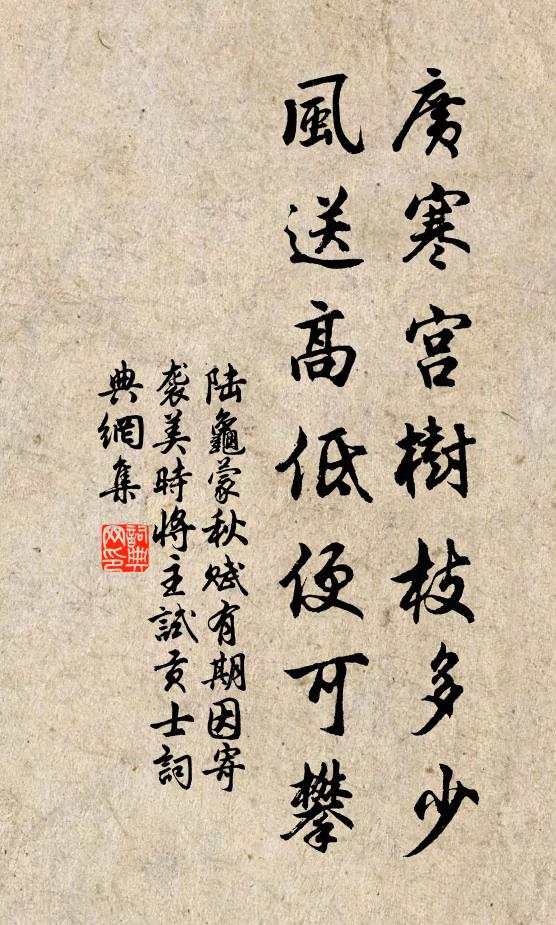 廣寒宮樹枝多少
風送高低便可攀
陸龜蒙秋賦有期因寄
襲美時將主試貢士詞
典網集
詞典網印